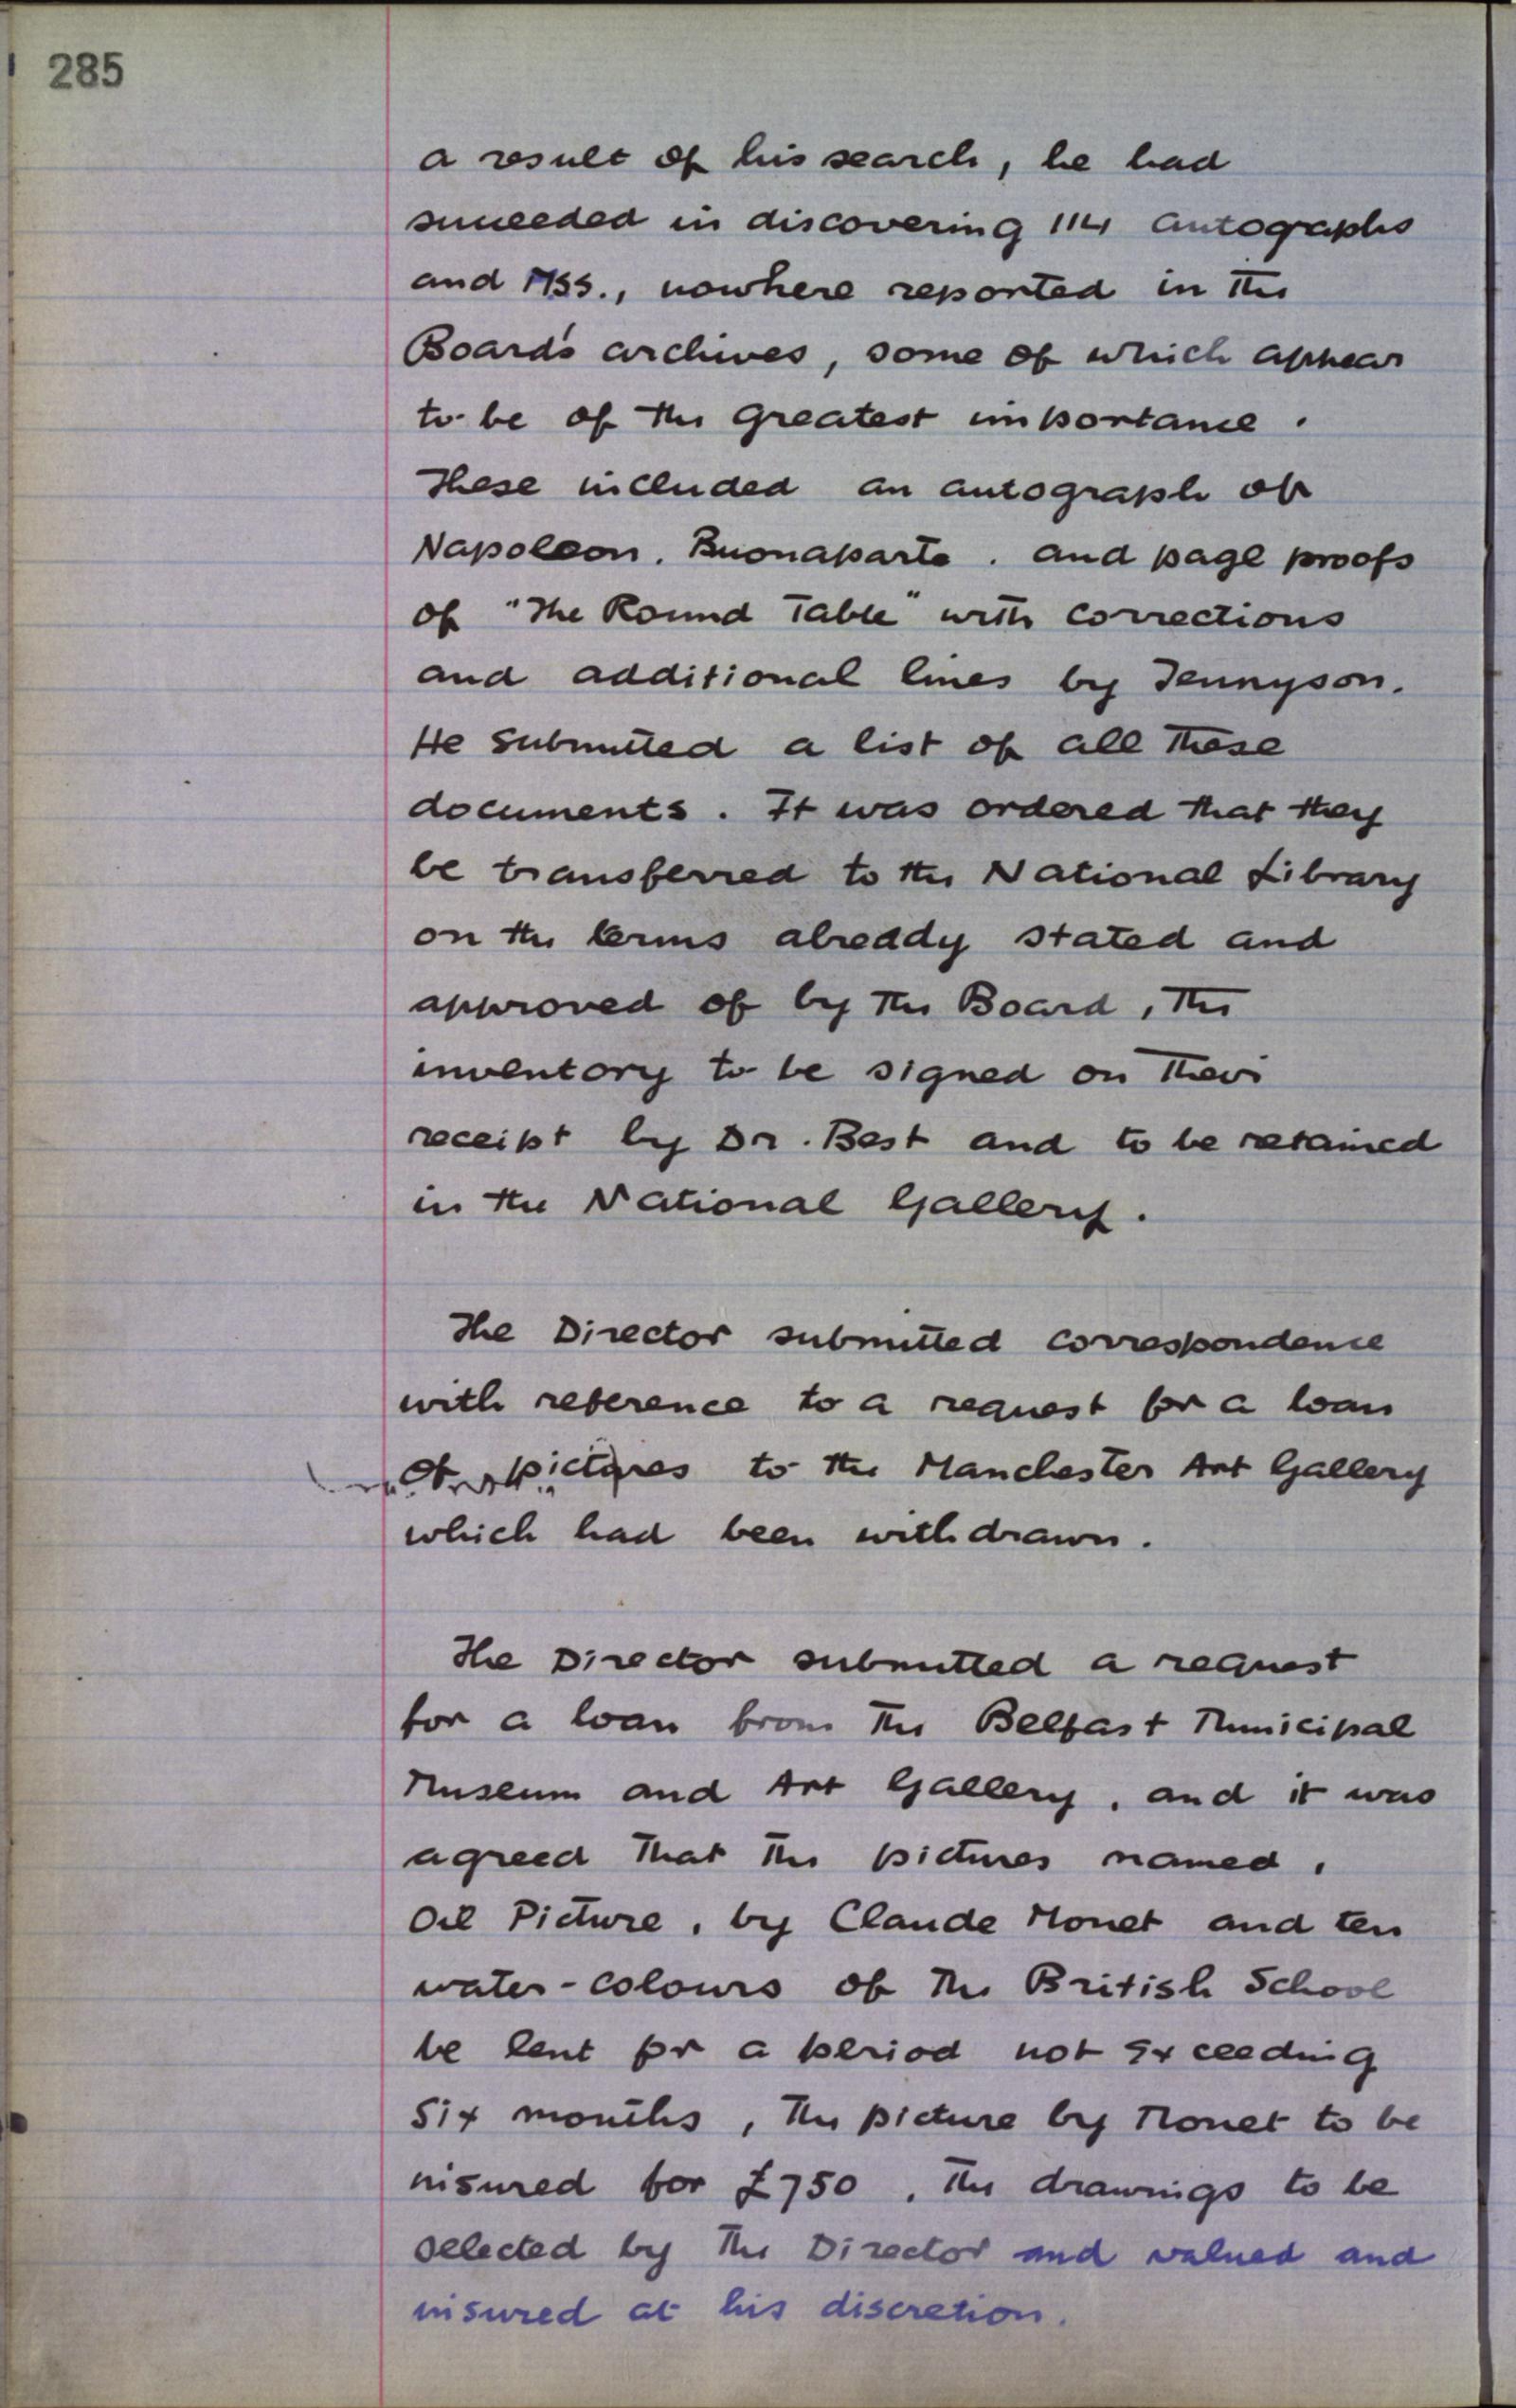 285
a result of his search, he had
succeeded in discovering 114 autographs
and MSS., nowhere reported in the
Board's archives, some of which appear
to be of the greatest importance.
These included an autograph of
Napoleon. Buonaparte. and page proofs
of "The Round Table" with corrections
and additional lines by Tennyson.
He submitted a list of all these
documents. It was ordered that they
be transferred to the National Library
on the terms already stated and
approved of by the Board, the
inventory to be signed on their
receipt by Dr. Best and to be retained
in the National Gallery.
The Director submitted correspondence
with reference to a request for a loan
of pictures to the Manchester Art Gallery
which had been withdrawn.
The Director submitted a request
for a loan from the Belfast Municipal
Museum and Art Gallery, and it was
agreed that the pictures named,
Oil Picture, by Claude Monet and ten
water-colours of the British School
be lent for a period not exceeding
six months, the picture by Monet to be
insured for £750, the drawings to be
selected by the Director and valued and
insured at his discretion.